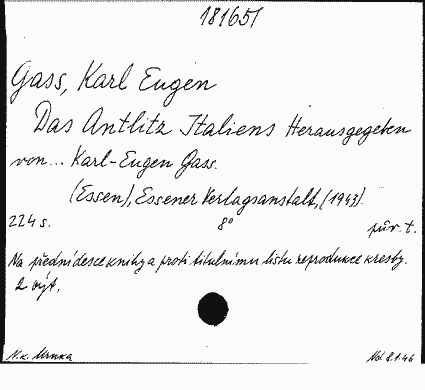 181651
Gass, Karl Eugen
Das Antlitz Italiens Herausgegeben
von... Karl-Eugen Gass.
(Essen), Essener Verlagsanstalt, (1943).
224 s. 8° pův. t.
Na přední desce knihy a proti titulnímu listu reprodukce kresby.
2 výt.
N.k. Mrnka Nol 8.1.46